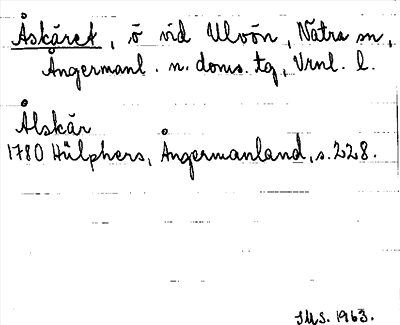 Åskäret, ö vid Ulvön, Nätra sn,
Ångermanl. n. doms. tg, Vrnl. l.
Ålskär
1780 Hülphers, Ångermanland, s. 228.
IMS. 1963.